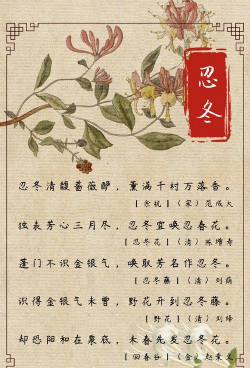 忍冬
忍冬清馥蔷薇酽，薰满千村万落香。
【余杭】（宋）范成大
独表芳心三月尽，忍冬宜唤忍春花。
【忍冬花】（清）陈增寿
蓬门不识金银气，唤取芳名作忍冬。
【忍冬藤】（清）刘绎
识得金银气未曾，野花开到忍冬藤。
【野花】（清）刘绎
却恐阳和在泉底，未春先发忍冬花。
【回春谷】（金）赵秉文